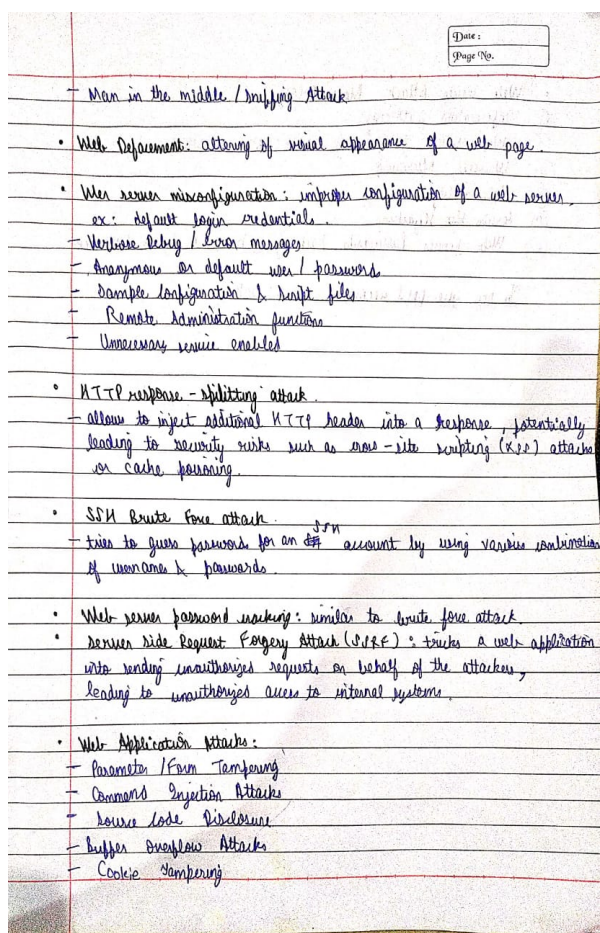 Date :
Page No.
- Man in the middle / sniffing Attack
• Web Defacement: altering of visual appearance of a web page.
• Wer server misconfiguration : improper configuration of a web server.
ex: default login credentials.
- Verbose Debug / Error messages
- Anonymous or default user / passwords
- Sample Configuration & Script files
- Remote Administration functions
- Unnecessary service enabled
• HTTP response - splitting attack.
- allows to inject additional HTTP header into a response, potentially
leading to security risks such as cross - site scripting (XSS) attacks
or cache poisoning.
• SSH Brute Force attack.
- tries to guess password for an SSH account by using various combination
of usernames & passwords.
• Web server password cracking : similar to brute force attack.
• Server side Request Forgery Attack (SSRF) : tricks a web application
into sending unauthorized requests on behalf of the attackers,
leading to unauthorized access to internal systems.
• Web Application Attacks :
- Parameter / Form Tampering
- Command Injection Attacks
- Source Code Disclosure
- Buffer Overflow Attacks
- Cookie Tampering